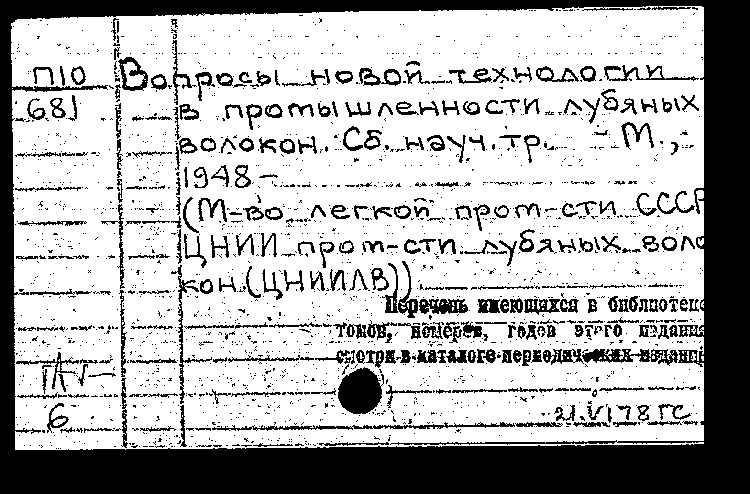 П10 Вопросы новой технологии
681 в промышленности лубяных
волокон. Сб. науч. тр. - М.,-
1948 -
(М-во легкой пром-сти СССР
ЦНИИ пром-сти лубяных воло
кон (ЦНИИЛВ))
Перечень имеющихся в библиотеке
томов, номеров, годов этого издания
смотри в каталоге периодических изданий
6
21.VI 78 ГС